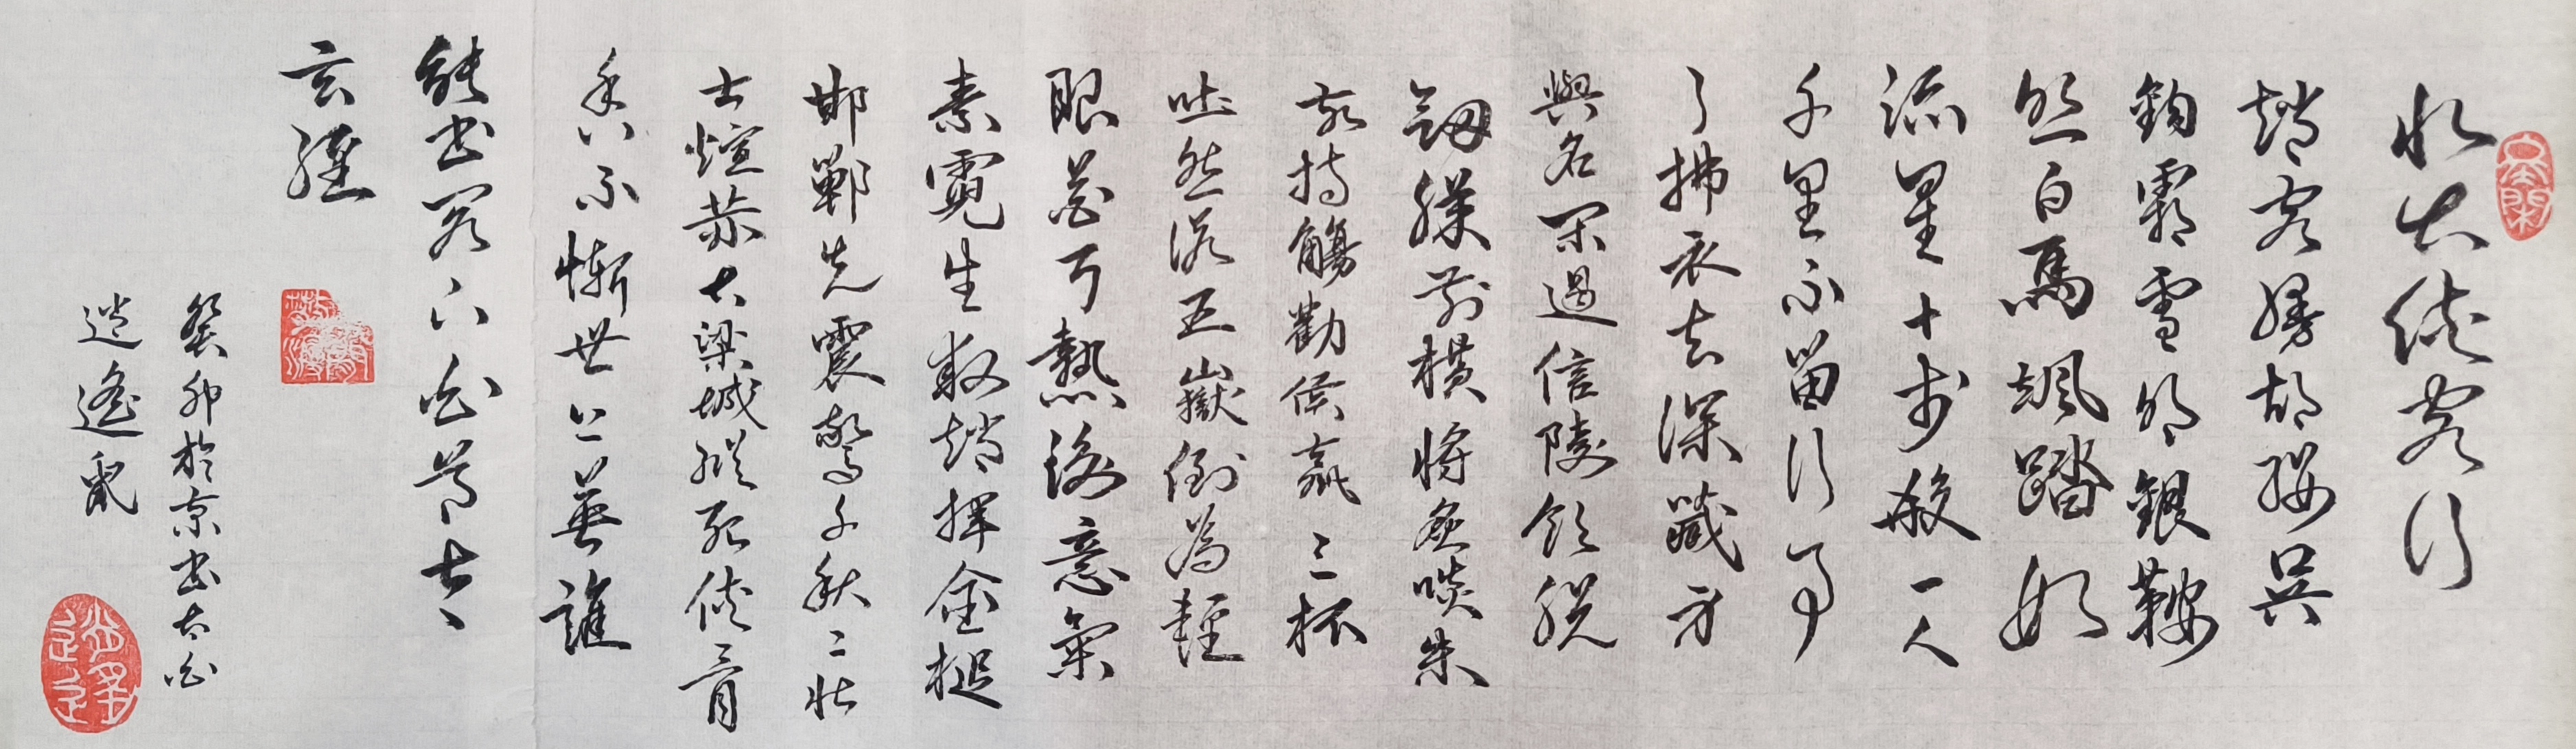 俠客行
趙客縵胡纓吳
鉤霜雪明銀鞍
照白馬颯踏如
流星十步殺一人
千里不留行事
了拂衣去深藏身
與名閑過信陵飲脫
劒膝前橫將炙啖朱
亥持觴勸侯嬴三杯
吐然諾五嶽倒為輕
眼花耳熱後意氣
素霓生救趙揮金槌
邯鄲先震驚千秋二壯
士煊赫大梁城縱死俠骨
香不慚世上英誰
能書閣下白首太
玄經
癸卯於京書太白
逍遙